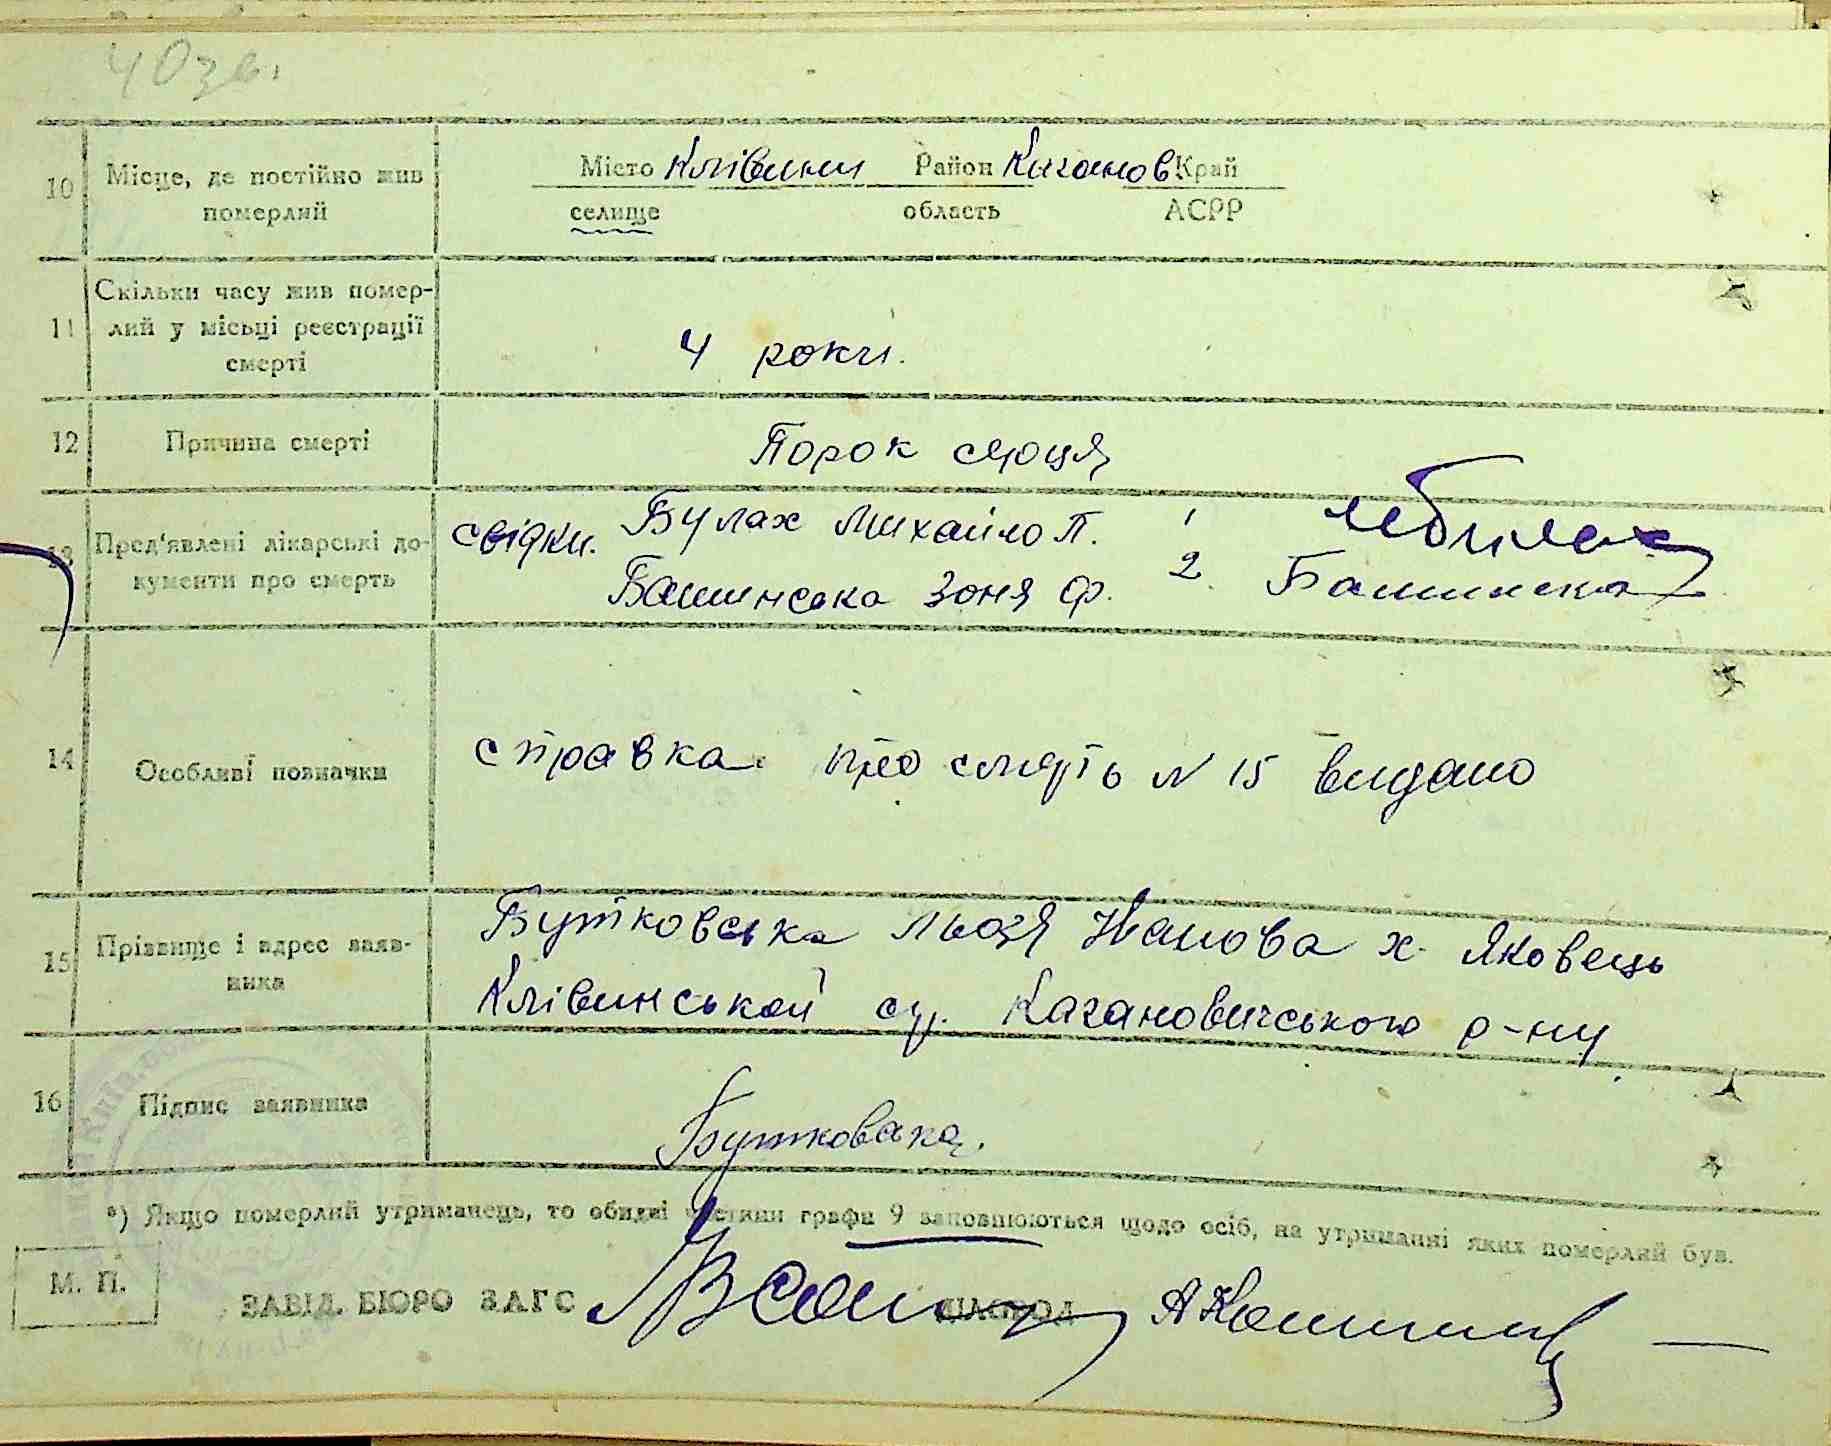 40зв.
10 Місце, де постійно жив померлий
Місто Клівини Район Каганов Край
селище область АСРР
11 Скільки часу жив помер-
лий у місьці реєстрації
смерті
4 роки.
12 Причина смерті
Порок серця
13 Пред'явлені лікарські до-
кументи про смерть
свідки. Булах Михайло П. 1
Башинська Зоня Ф. 2. Башинска
14 Особливі позначки
справка про смерть N 15 видано
15 Прізвище і адрес заяв-
ника
Бутковська Іванова х. Яковець
Клівинської с/р. Кагановичського р-ну
16 Підпис заявника
Бутковска.
*) Якщо померлий утриманець, то обидві частини графи 9 заповнюються щодо осіб, на утриманні яких померлий був.
М. П.
ЗАВІД. БЮРО ЗАГС ДІЛОВОД